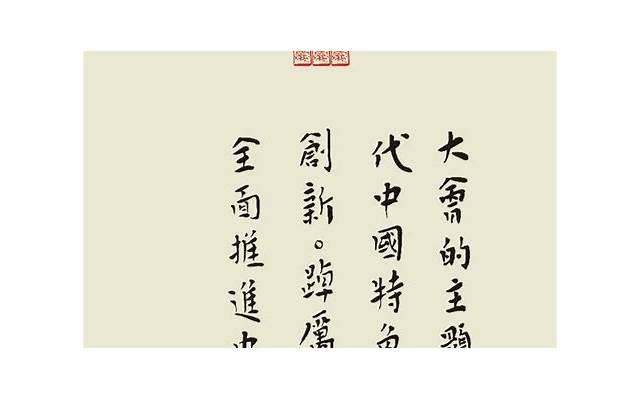 大會的主題
代中國特色
創新。踔厲
全面推進中